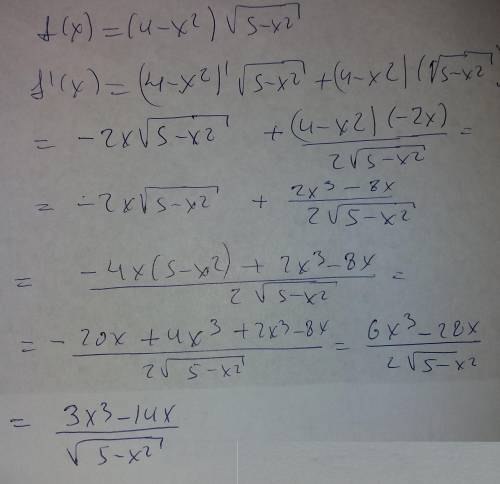 f(x) = (4-x²) √(5-x²)
f'(x) = (4-x²)' √(5-x²) + (4-x2) (√(5-x²)
= -2x√(5-x²) + (4-x2)(-2x) / 2√(5-x²) =
= -2x√(5-x²) + 2x³-8x / 2√(5-x²)
= -4x(5-x²) + 2x³-8x / 2√(5-x²) =
= -20x+4x³+2x³-8x / 2√(5-x²) = 6x³-28x / 2√(5-x²)
= 3x³-14x / √(5-x²)